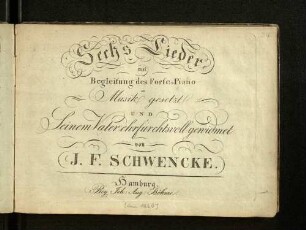 Sechs Lieder
mit
Begleitung des Forte-Piano
in
Musik gesetzt
UND
Seinem Vater ehrfurchtsvoll gewidmet
von
J. F. SCHWENCKE.
Hamburg
Bey Joh. Aug. Böhme.